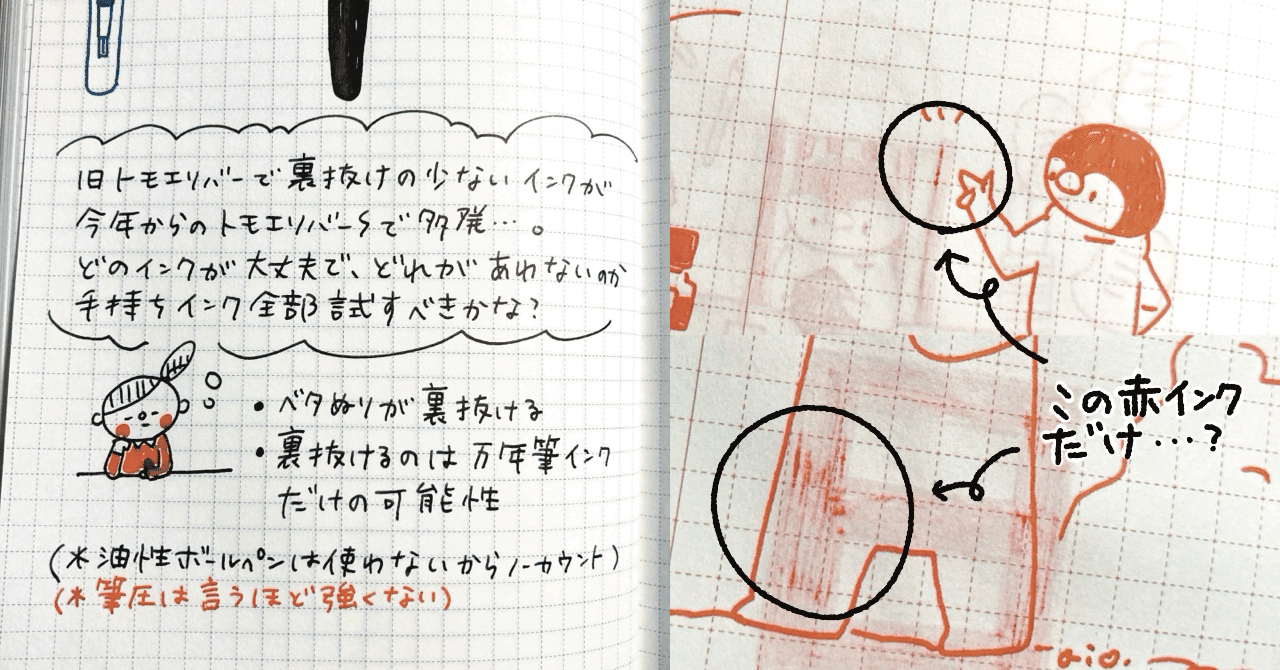 旧トモエリバーで裏抜けの少ないインクが
今年からのトモエリバーSで多発…。
どのインクが大丈夫で、どれがあわないのか
手持ちインク全部試すべきかな?
・ベタぬりが裏抜ける
・裏抜けるのは万年筆インク
だけの可能性
(※油性ボールペンは使わないからノーカウント)
(※筆圧は言うほど強くない)
この赤インク
だけ…?
-aio.